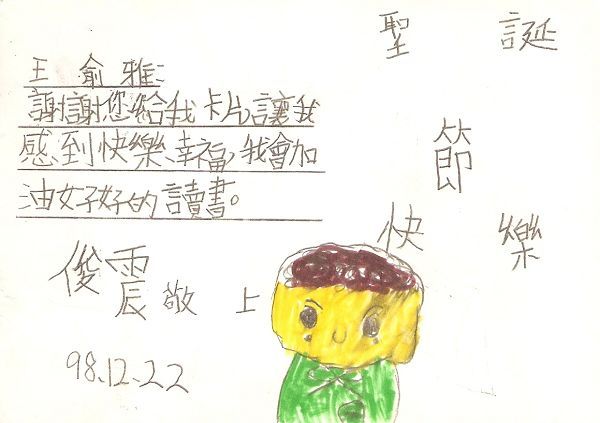 聖誕
節
快樂
王俞雅:
謝謝您給我卡片,讓我
感到快樂、幸福,我會加
油好好的讀書。
俊震敬上
98.12.22